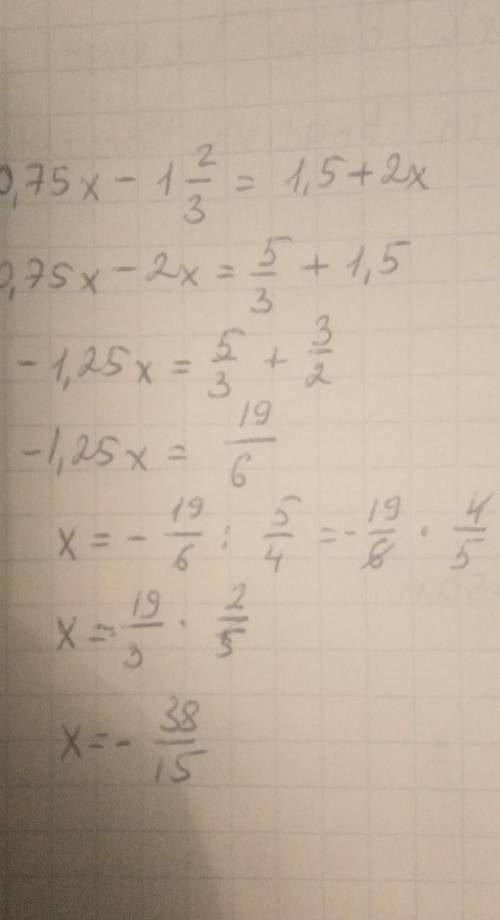 0,75x - 1 2/3 = 1,5 + 2x
0,75x - 2x = 5/3 + 1,5
-1,25x = 5/3 + 3/2
-1,25x = 19/6
x = - 19/6 : 5/4 = - 19/6 · 4/5
x = - 19/3 · 2/5
x = - 38/15